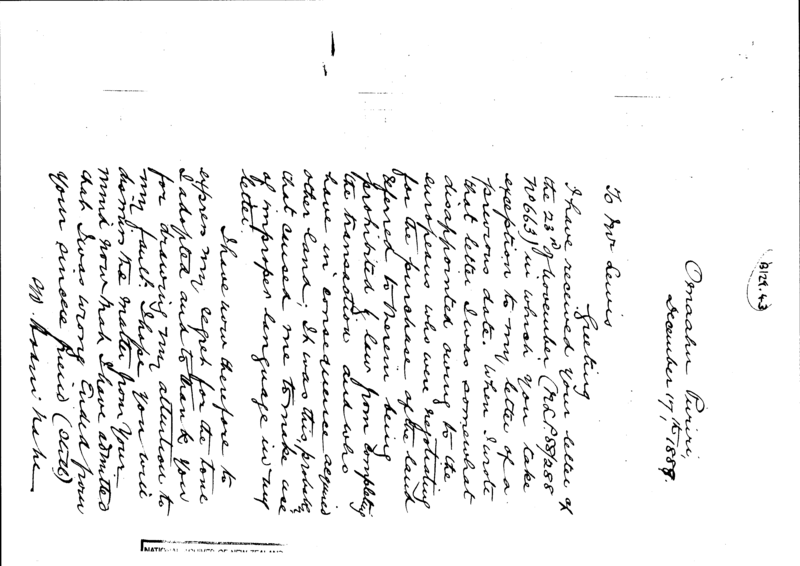 B129.43
Omaahu Puriri,
December 17th 1889.
To Mr Lewis
Greeting
I have received your letter of
the 23rd of November (NLP.88/288
No 663) in which you take
exception to my letter of a
previous date. When I wrote
that letter I was somewhat
disappointed owing to the
europeans who were negotiating
for the purchase of the land
referred to therein being
prohibited by law from completing
the transaction and who
have in consequence acquired
other land; It was this, probably,
that caused me to make use
of improper language in my
letter.
I have now therefore to
express my regret for the tone
I adopted and to thank you
for drawing my attention to
my fault. I hope you will
dismiss the matter from your
mind now that I have admitted
that I was wrong. Ended from
your sincere friend
W. Hoani Nahe
NATIONAL ARCHIVES OF NEW ZEALAND